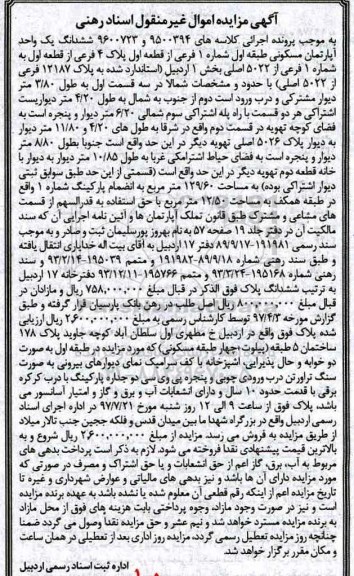 آگهی مزایده اموال غیرمنقول اسناد رهنی
به موجب پرونده اجرائی کلاسه های ۹۵۰۰۳۹۴ و ۹۶۰۰۷۲۳ ششدانگ یک واحد
آپارتمان مسکونی طبقه اول شماره ۱ فرعی از قطعه اول پلاک ۴ فرعی از قطعه اول به
شماره ۱ فرعی از ۵۰۲۲ اصلی بخش ۱ اردبیل (استاندارد شده به پلاک ۱۲۱۸۷ فرعی
از ۵۰۲۲ اصلی) با حدود و مشخصات شمالا در سه قسمت اول به طول ۳/۸۰ متر
دیوار مشترکی و درب ورود است دوم از جنوب به شمال به طول ۴/۲۰ متر دیواریست
اشتراکی هر دو قسمت با راه پله اشتراکی سوم شمالی ۶/۲۰ متر دیوار و پنجره است به
فضای کوچه تهویه در قسمت دوم واقع در شرقا به طول های ۴/۲۰ و ۱۱/۸۰ متر دیوار
به دیوار پلاک ۵۰۲۶ اصلی تهویه دیگر در این حد واقع است جنوبا بطول ۸/۸۰ متر
دیوار و پنجره است به فضای حیاط اشتراکی غربا به طول ۱۰/۸۵ متر دیوار به دیوار با
خانه قطعه دوم تهویه دیگر در این حد واقع است (قسمتی از این حد طبق سوابق ثبتی
دیوار اشتراکی بوده) به مساحت ۱۲۹/۶۰ متر مربع به انضمام پارکینگ شماره ۱ واقع
در طبقه همکف به مساحت ۱۲/۵۰ متر مربع با حق استفاده به قدرالسهم از قسمت
های مشاعی و مشترک طبق قانون تملک آپارتمان ها و آئین نامه اجرایی آن که سند
مالکیت آن در دفتر جلد ۱۹ صفحه ۵۷ به نام بهروز پورسلیمان ثبت و صادر و به موجب
سند رسمی ۱۹۱۹۸۱-۸۹/۹/۱۷ دفتر ۱۷ اردبیل به آقای بیت اله خدایاری انتقال یافته
و طبق سند رهنی شماره ۱۹۱۹۸۲-۸۹/۹/۱۸ و متمم ۱۹۵۰۳۹-۹۳/۲/۱۴ و سند
رهنی شماره ۱۹۵۱۶۸-۹۳/۲/۲۴ و متمم ۱۹۵۷۶۶-۹۳/۱۲/۱۱ دفترخانه ۱۷ اردبیل
به ترتیب ششدانگ پلاک فوق الذکر در قبال مبلغ ۷۵۸.۰۰۰.۰۰۰ ریال و مازادان در
قبال مبلغ ۸۰۰.۰۰۰.۰۰۰ ریال اصل طلب در رهن بانک پارسیان قرار گرفته و طبق
گزارش مورخه ۹۷/۴/۳ توسط کارشناس رسمی به مبلغ ۲.۶۰۰.۰۰۰.۰۰۰ ریال ارزیابی
شده پلاک فوق واقع در اردبیل خ مطهری اول سلطان آباد کوچه جاوید پلاک ۱۷۸
ساختمان ۵ طبقه (پیلوت+چهار طبقه مسکونی) که مورد مزایده در طبقه اول به صورت
دو خوابه و حال پذیرایی، آشپزخانه با کف سرامیک نمای دیوارهای بیرونی به صورت
سنگ تراورتن درب ورودی چوبی و پنجره پی وی سی دو جداره پارکینگ با درب کرکره
برقی با قدمت حدود ۱۰ سال و دارای انشعابات آب و برق و گاز و امتیاز آسانسور می
باشد، پلاک فوق از ساعت ۹ الی ۱۲ روز شنبه مورخ ۹۷/۷/۲۱ در اداره اجرای اسناد
رسمی اردبیل واقع در بزرگراه شهدا ما بین میدان قدس و فلکه ججین جنب تالار میلاد
از طریق مزایده به فروش می رسد. مزایده از مبلغ ۲.۶۰۰.۰۰۰.۰۰۰ ریال شروع و به
بالاترین قیمت پیشنهادی نقدا فروخته می شود. لازم به ذکر است پرداخت بدهی های
مربوط به آب، برق، گاز اعم از حق انشعابات و یا حق اشتراک و مصرف در صورتی که
مورد مزایده دارای آن ها باشد و نیز بدهی های مالیاتی و عوارض شهرداری و غیره تا
تاریخ مزایده اعم از اینکه رقم قطعی آن معلوم شده یا نشده باشد به عهده برنده مزایده
است و نیز در صورت وجود مازاد، وجوه پرداختی بابت هزینه های فوق از محل مازاد
به برنده مزایده مسترد خواهد شد و نیم عشر و حق مزایده نقدا وصول می گردد ضمنا
چنانچه روز مزایده تعطیل رسمی گردد، مزایده روز اداری بعد از تعطیلی در همان ساعت
و مکان مقرر برگزار خواهد شد.
اداره ثبت اسناد رسمی اردبیل